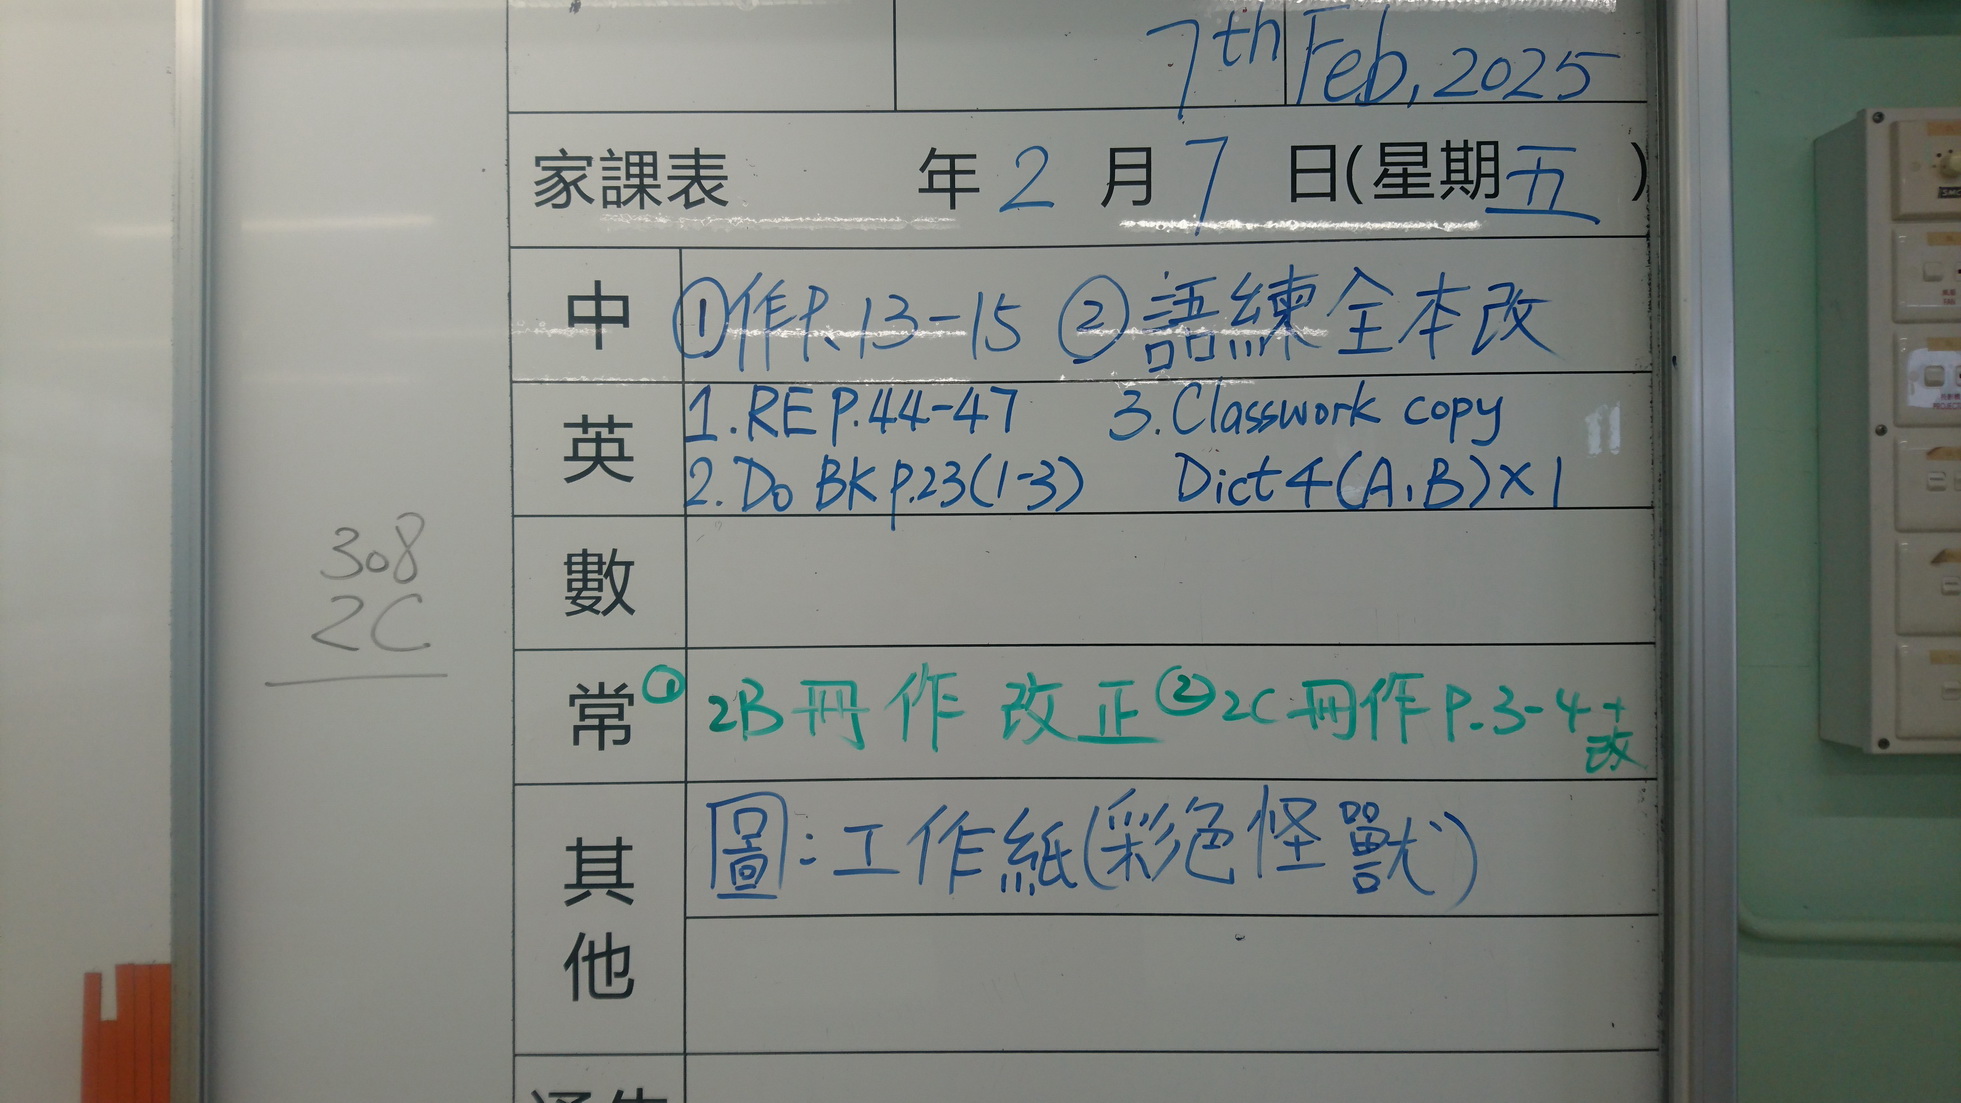 7th Feb, 2025
家課表 年 2 月 7 日(星期五)
中 ①作P.13-15 ②語練全本改
英 1. RE P.44-47 3. Classwork copy
2. Do BK p.23(1-3) Dict 4(A,B)×1
數
308
2C
常 ① 2B冊作改正 ② 2C冊作P.3-4+改
其他 圖:工作紙(彩色怪獸)